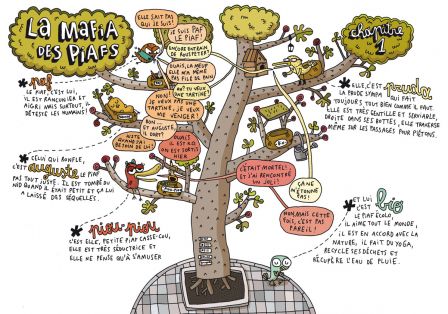 LA MAFIA
DES PIAFS
chapitre
1
ELLE SAIT PAS
QUI JE SUIS!
JE SUIS PAF
LE PIAF!
ENCORE EN TRAIN DE
OUAIS, LA MEUF
ELLE M'A MÊME
PAS FILÉ DE PAIN
AH? TU VEUX
UNE TARTINE?
NON!
JE VEUX PAS UNE
TARTINE, JE VEUX
ME VENGER!
BON
ET AUGUSTE
IL DORT?
OUAIS
IL EST K.O.
ON EST SORTIS
HIER
C'ÉTAIT MORTEL!
ET J'AI RENCONTRÉ
UN JOLI!
ÇA NE
M'ÉTONNE
PAS!
NON, MAIS CETTE
FOIS, C'EST PAS
PAREIL!
* paf
LE PIAF, C'EST LUI,
IL EST RANCUNIER ET
AIGRI MAIS SURTOUT, IL
DÉTESTE LES HUMAINS!
* CELUI QUI RONFLE,
C'EST auguste LE PIAF
PAS TOUT JUSTE. IL EST TOMBÉ DU
NID QUAND IL ÉTAIT PETIT ET ÇA LUI
A LAISSÉ DES SÉQUELLES.
* piou-piou
C'EST ELLE, PETITE PIAF CASSE-COU,
ELLE EST TRÈS SÉDUCTRICE ET
ELLE NE PENSE QU'À S'AMUSER
* ELLE, C'EST
LA POULE SYMPA QUI FAIT
TOUJOURS TOUT BIEN COMME IL FAUT.
ELLE EST TRÈS GENTILLE ET SERVIABLE,
DROITE DANS SES BOTTES, ELLE TRAVERSE
MÊME SUR LES PASSAGES POUR PIÉTONS.
* ET LUI
C'EST bio
LE PIAF ÉCOLO,
IL AIME TOUT LE MONDE,
IL EST EN ACCORD AVEC LA
NATURE, IL FAIT DU YOGA,
RECYCLE SES DÉCHETS ET
RÉCUPÈRE L'EAU DE PLUIE.